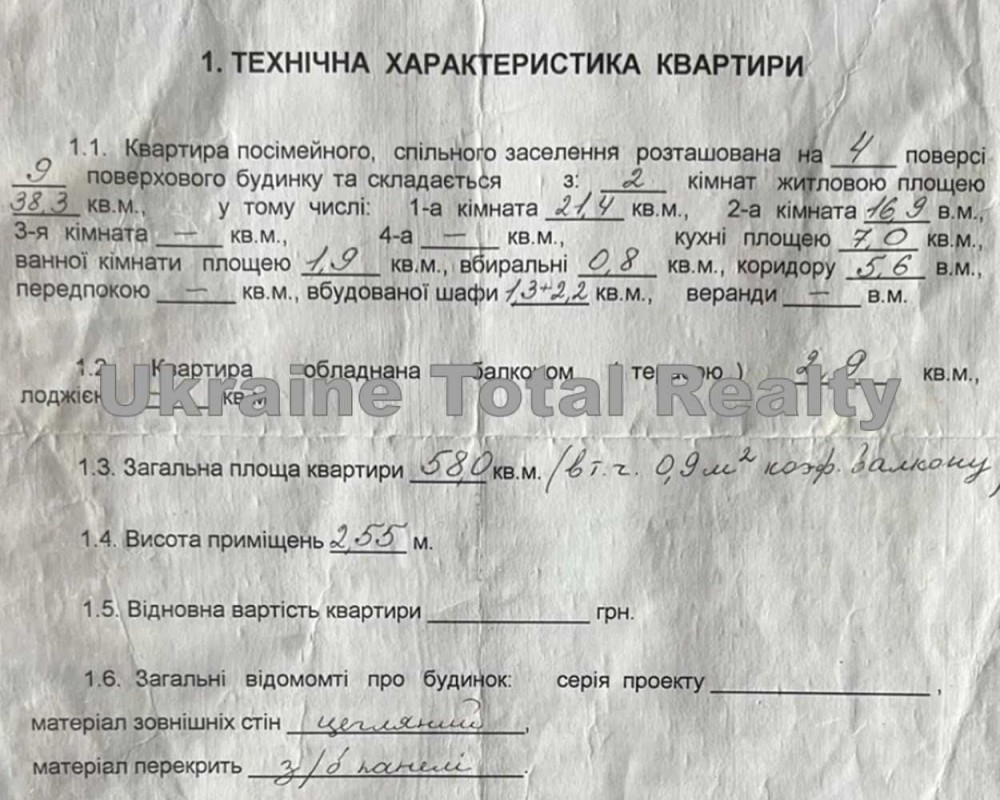 1. ТЕХНІЧНА ХАРАКТЕРИСТИКА КВАРТИРИ
1.1. Квартира посімейного, спільного заселення розташована на 4 поверсі
9 поверхового будинку та складається з: 2 кімнат житловою площею
38,3 кв.м., у тому числі: 1-а кімната 21,4 кв.м., 2-а кімната 16,9 в.м.,
3-я кімната — кв.м., 4-а — кв.м., кухні площею 7,0 кв.м.,
ванної кімнати площею 1,9 кв.м., вбиральні 0,8 кв.м., коридору 5,6 в.м.,
передпокою — кв.м., вбудованої шафи 1,3+2,2 кв.м., веранди — в.м.
1.2. Квартира обладнана балконом (терасою) 2,9 кв.м.,
лоджією кв.м.
Ukraine Total Realty
1.3. Загальна площа квартири 58,0 кв.м. (в т.ч. 0,9 м² коэф. балкону)
1.4. Висота приміщень 2,55 м.
1.5. Відновна вартість квартири ____ грн.
1.6. Загальні відомомті про будинок: серія проекту ____ ,
матеріал зовнішніх стін цегляний,
матеріал перекрить з/б панелі.